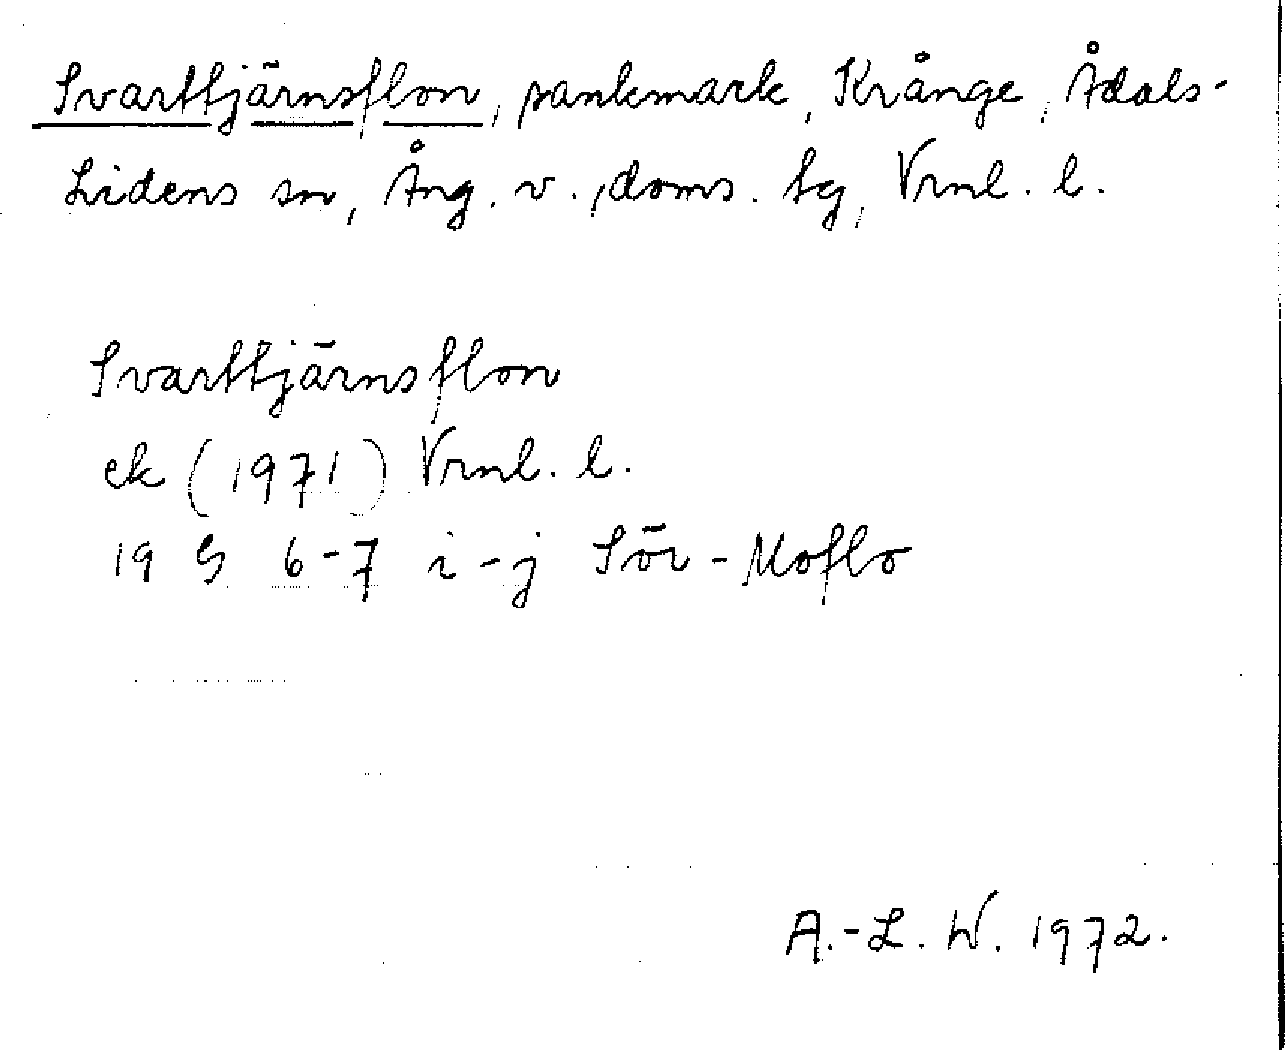 Svarttjärnsflon, sankmark, Krånge, Ådals-
Lidens sn, Ång. v., doms. tg, Vrnl. l.
Svarttjärnsflon
ek (1971) Vrnl. l.
19 G 6-7 i-j Sör-Moflo
A.-L. W. 1972.